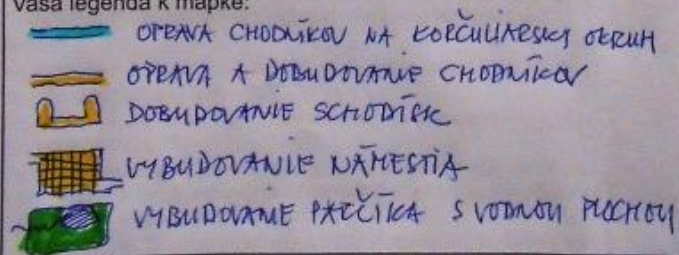 Vaša legenda k mapke:
OPRAVA CHODNÍKOV NA KORČULIARSKY OKRUH
OPRAVA A DOBUDOVANIE CHODNÍKOV
DOBUDOVANIE SCHODÍSK
VYBUDOVANIE NÁMESTIA
VYBUDOVANIE PARČÍKA S VODNOU PLOCHOU